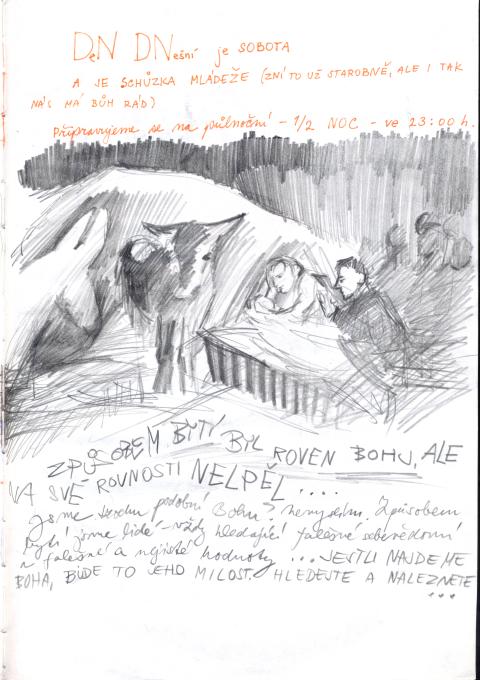 DeN DNešní je SOBOTA
A JE SCHŮZKA MLÁDEŽE (ZNÍ TO UŽ STAROBNĚ, ALE I TAK
NÁS MÁ BŮH RÁD)
Připravujeme se na půlnoční - 1/2 NOC - ve 23:00 h.
ZPŮSOBEM BYTÍ BYL ROVEN BOHU, ALE
NA SVÉ ROVNOSTI NELPĚL....
Jsme trochu podobní Bohu? nemyslím. Způsobem
bytí jsme lidé - vždy hledající falešné sebevědomí
a falešné a nejisté hodnoty ... JESTLI NAJDEME
BOHA, BUDE TO JEHO MILOST. HLEDEJTE A NALEZNETE
...